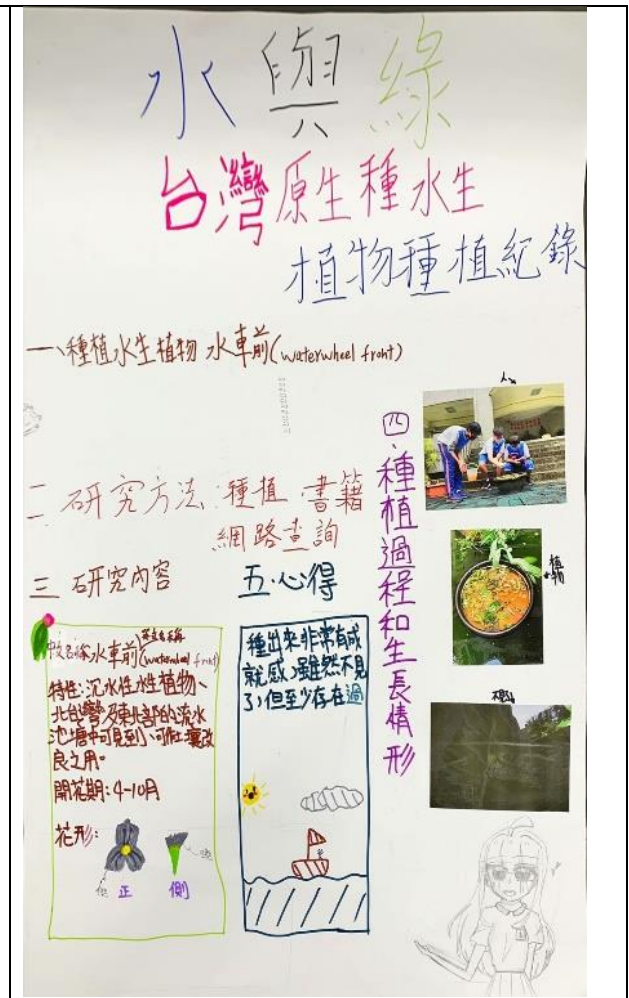 水與綠
台灣原生種水生
植物種植紀錄
一、種植水生植物 水車前(waterwheel front)
二 研究方法:種植 書籍
網路查詢
三 研究內容
水車前(waterwheel front)
特性:沉水性水生植物、
北台灣及東北部的流水
池塘中可見到、可做土壤改
良之用。
開花期:4-10月
花形:
正
側
五.心得
種出來非常有成
就感,雖然不見
了,但至少存在過
四、種植過程和生長情形
人
植物